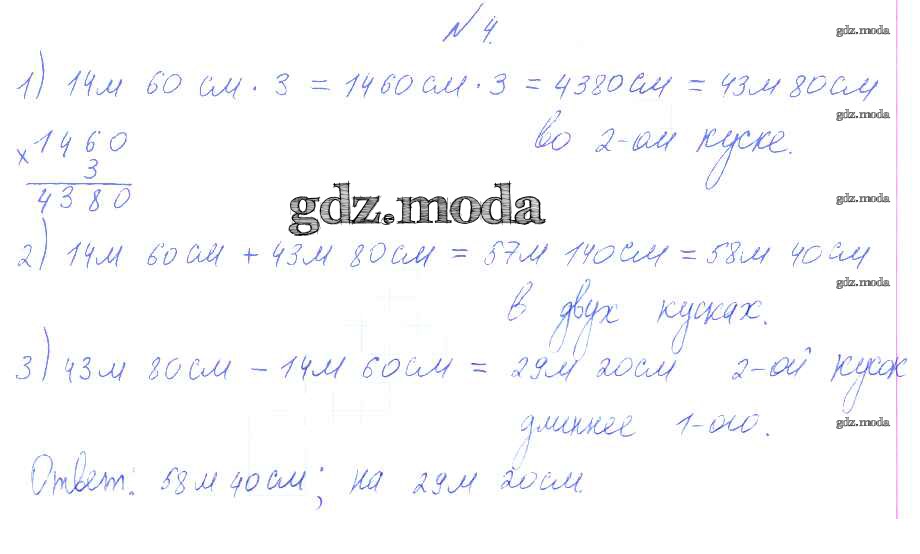 № 4.
gdz.moda
1) 14м 60 см · 3 = 1460см · 3 = 4380см = 43м 80см
gdz.moda
во 2-ом куске.
× 1460
3
4380
gdz.moda
gdz.moda
2) 14м 60см + 43м 80см = 57м 140см = 58м 40см
gdz.moda
в двух кусках.
3) 43м 80см - 14м 60см = 29м 20см 2-ой кусок
длиннее 1-ого.
gdz.moda
Ответ: 58м 40см; на 29м 20см.